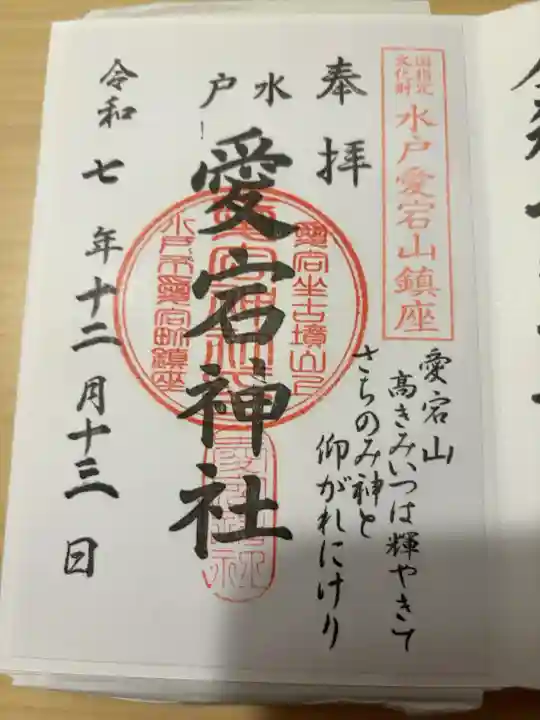 国指定
文化財
水戸愛宕山鎮座
奉拝
水戸
愛宕神社
愛宕山
高きみいつは輝やきて
さちのみ神と
仰がれにけり
愛宕坐古墳山乃
愛宕神社
水戸市愛宕町鎮座
令和七年十二月十三日